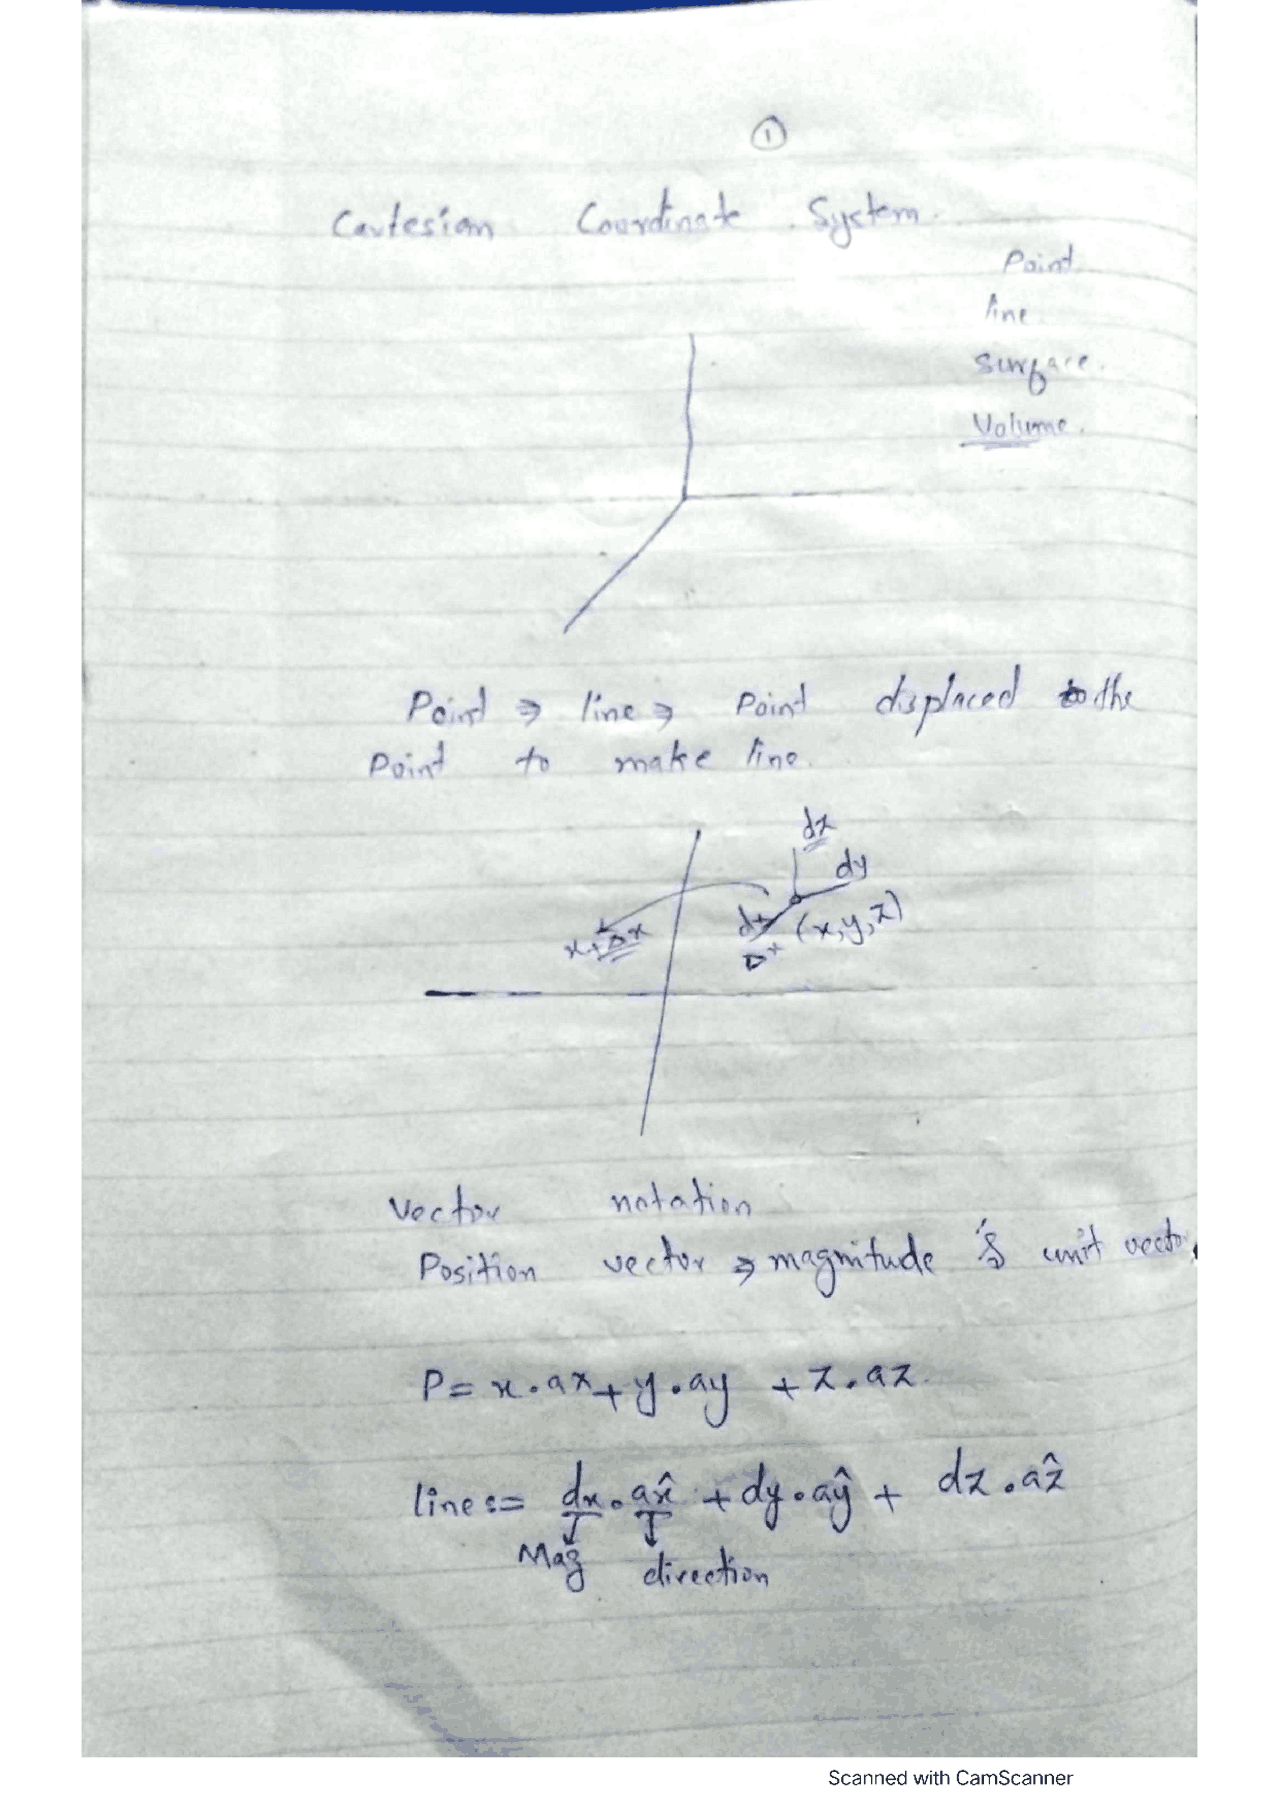 ①
Cartesian Coordinate System.
Point
line
Surface.
Volume.
Point ⇒ line ⇒ Point displaced to the
Point to make line.
dz
dy
dx (x,y,z)
x+Δx
Δx
Vector notation
Position vector ⇒ magnitude & unit vector
P = x.ax + y.ay + z.az.
line := dx.ax̂ + dy.aŷ + dz.aẑ
Mag direction
Scanned with CamScanner